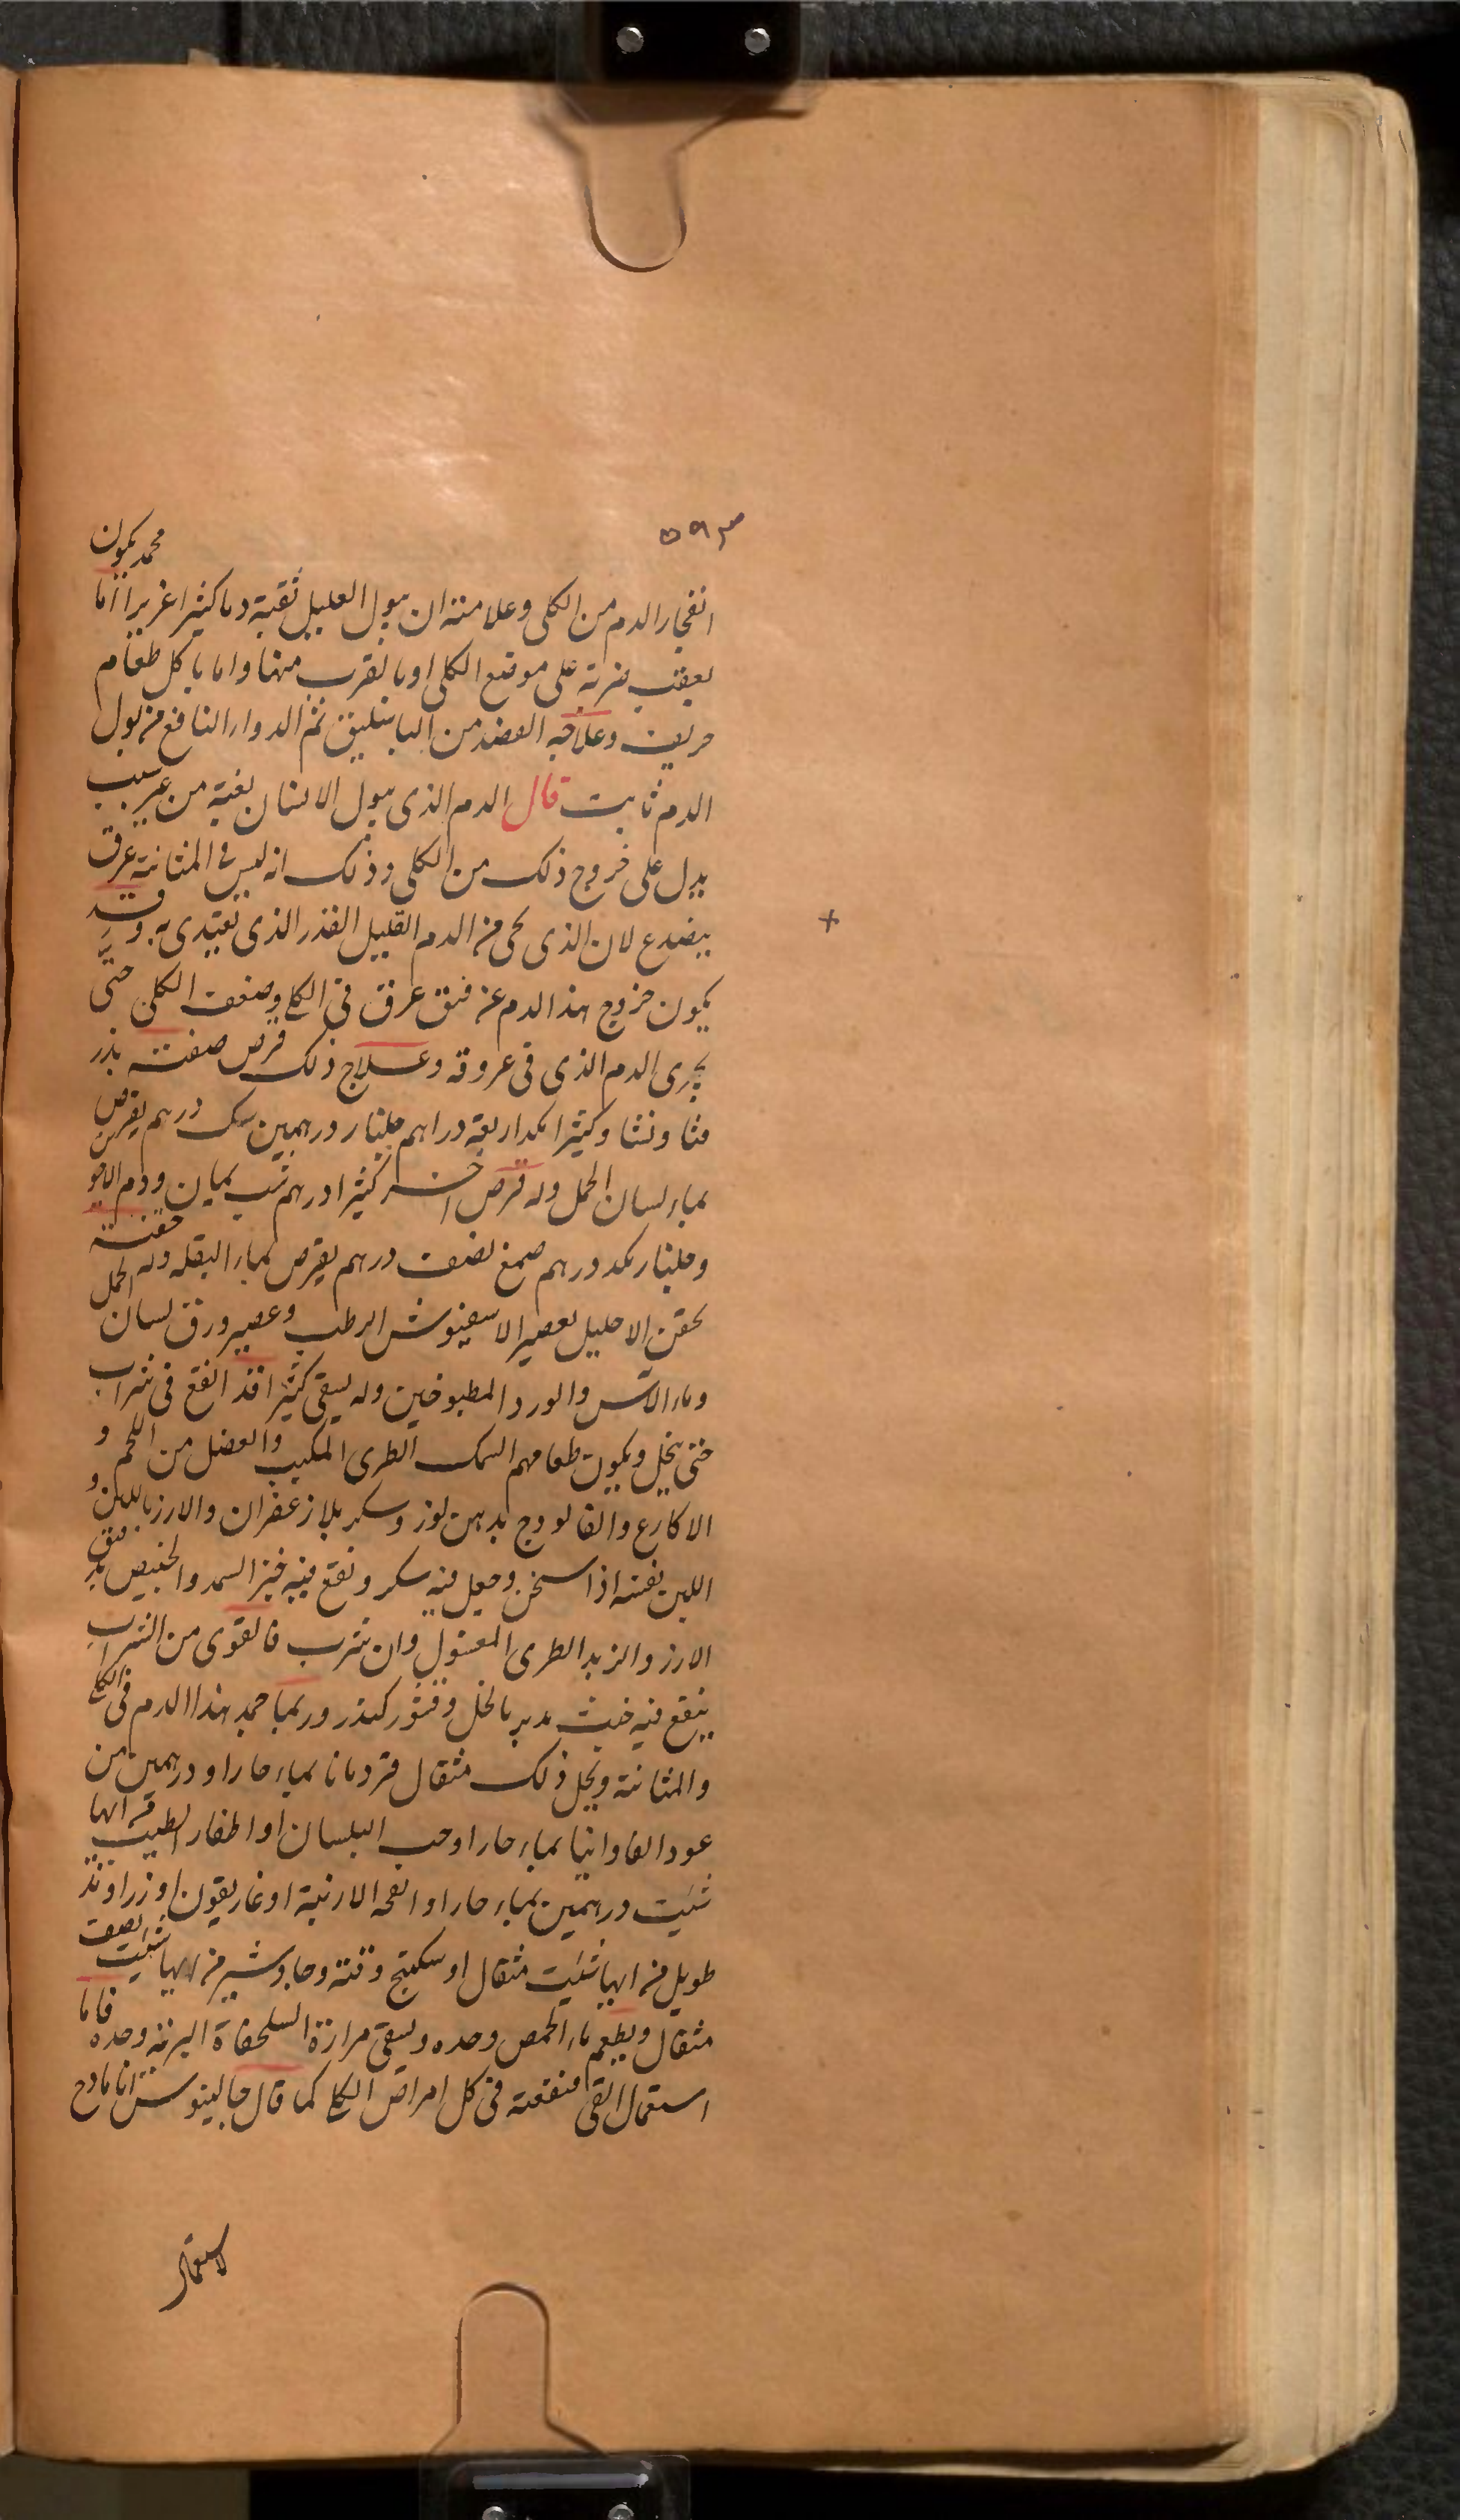 ۵۹۳
محمد يكون
انفجار الدم من الكلى وعلامته ان يبول العليل بغتة دما كثيرا غزيرا اما
بعقب ضربة على موضع الكلى او بالقرب منها واما باكل طعام
حريف وعلاجه الفصد من الباسليق ثم الدواء النافع من بول
الدم ثابت قال الدم الذى يبول الانسان بغتة من غير سبب
يدل على خروج ذلك من الكلى وذلك انه ليس فى المثانة عرق
ينصدع لان الذى يجى من الدم القليل القذر الذى تغتدى به وقد
يكون خروج هذا الدم عن فتق عرق فى الكلى وضعف الكلى حتى
يجرى الدم الذى فى عروقه وعلاج ذلك قرص صفته بذر
قثا ونشا وكثيرا بكد اربعة دراهم جلنار درهمين سك درهم يقرص
بماء لسان الحمل وله قرص اخر كثيرا درهم شب يمان ودم الاخوين
وجلنار بكد درهم صمغ نصف درهم يقرص بماء البقله وله حقنة
تحقن الاحليل بعصير الاسفيوش الرطب وعصير ورق لسان الحمل
وماء الآس والورد المطبوخين وله يسقى كثيرا قد انقع فى شراب
حتى ينحل ويكون طعامهم السمك الطرى المكبب والعضل من اللحم و
الاكارع والفالودج بدهن لوز وسكر بلا زعفران والارز باللبن و
اللبن نفسه اذا سخن وجعل فيه سكر ونقع فيه خبز السمد والخبيص بدقيق
الارز والزبد الطرى المغسول وان شرب فالقوى من الشراب
ينقع فيه خبث مدبر بالخل وقشور كندر وربما جمد هذا الدم فى الكلى
والمثانة ويحل ذلك مثقال قردمانا بماء حار او درهمين من
عود الفاوانيا بماء حار او حب البلسان او اظفار الطيب من ايها
شئت درهمين بماء حار او انفحه الارنبة او غاريقون او زراوند
طويل من ايها شئت مثقال او سكبينج وقنه وجاوشير من ايها شئت نصف
مثقال ويطعم ماء الحمص وحده ويسقى مرارة السلحفاة البرية وحده فاما
استعمال القى منفعته فى كل امراض الكلى كما قال جالينوس انا مادح
لاستعمال